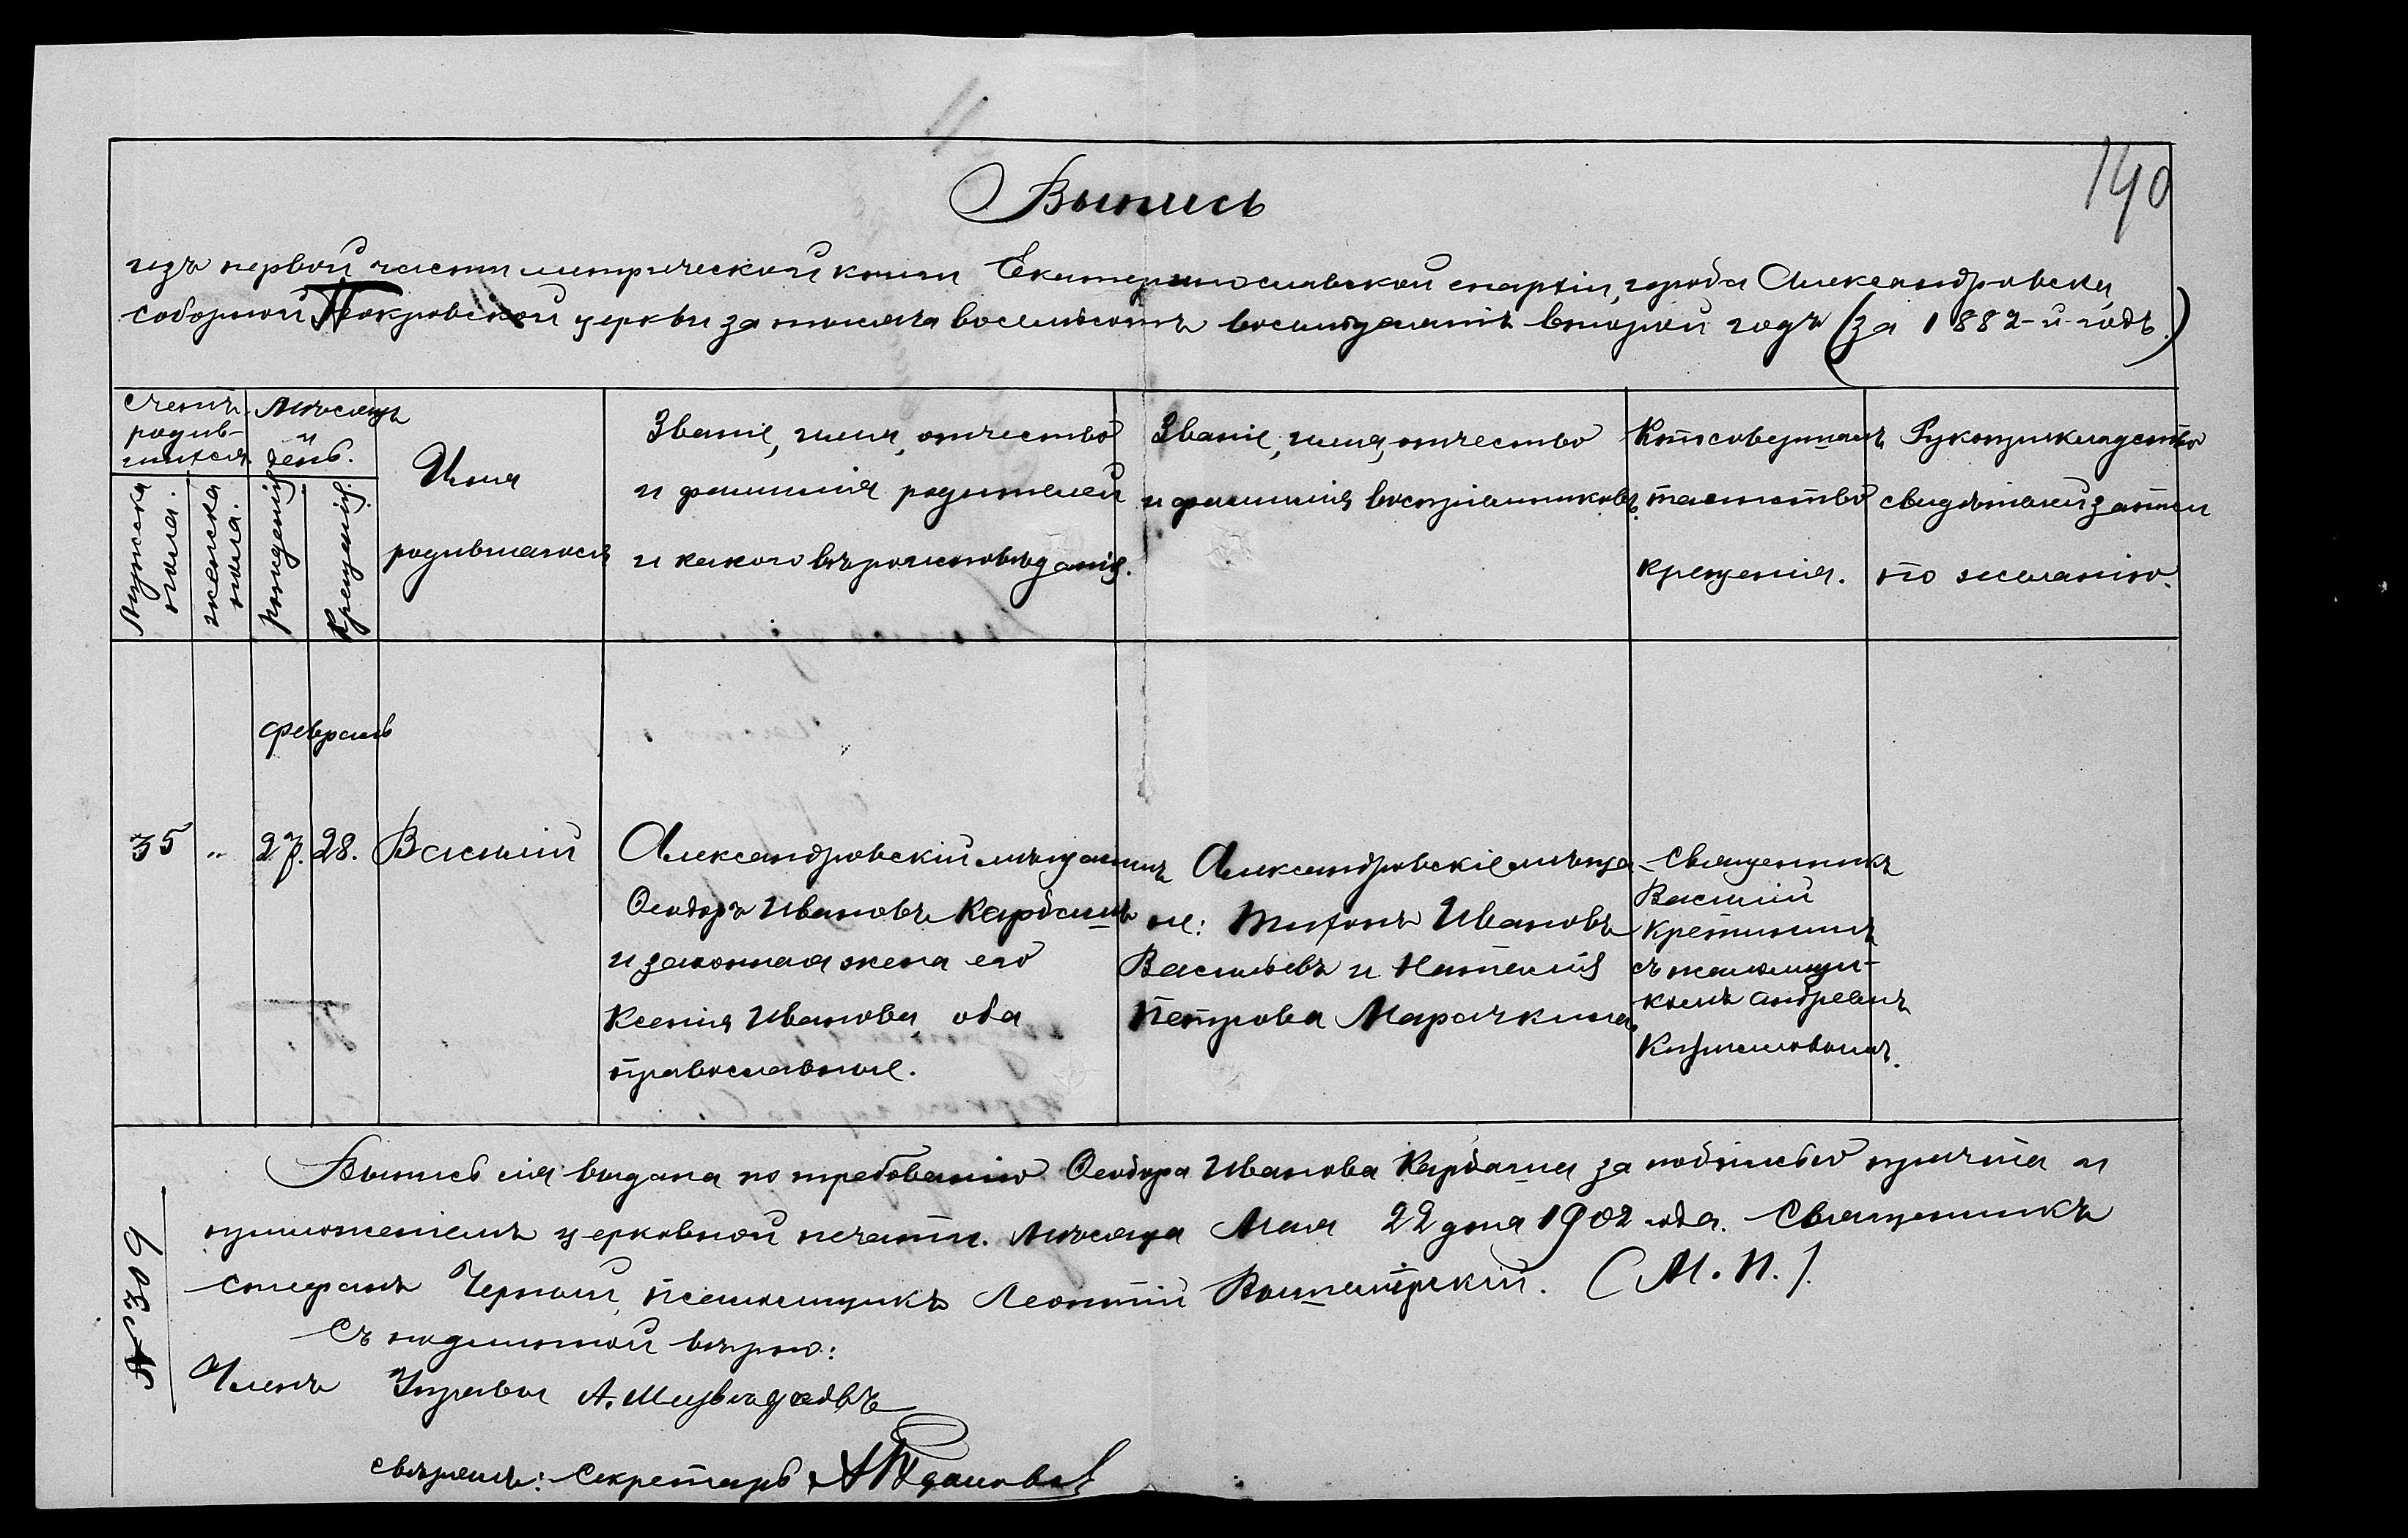 140
Выпись
изъ первой части метрической книги Екатеринославской епархіи, города Александровска,
соборной Покровской церкви за тысяча восемьсотъ восемьдесятъ второй годъ (за 1882-й годъ.)
Счетъ родив-
шихся.
Мужска пола.
женска пола.
Мѣсяцъ
и
день.
рожденія
Крещенія.
Имя
родившагося
Званіе, имя, отчество
и фамилія родителей
и какого вѣроисповѣданія.
Званіе, имя, отчество
и фамилія воспріемниковъ.
Кто совершалъ
таинство
крещенія.
Рукоприкладство
свидѣтелей записи
по желанію.
февраль
35
"
27.
28.
Василій
Александровскій мѣщанинъ
Ѳеодоръ Ивановъ Кардашъ
и законная жена его
Ксенія Иванова, оба
православные.
Александровскіе мѣща-
не: Тихонъ Ивановъ
Васильевъ и Наталія
Петрова Марачкина.
Священникъ
Василій
Кретининъ
съ псаломщи-
комъ Андреемъ
Выпись сія выдана по требованію Ѳеодора Иванова Кардаша за подписью причта и
приложеніемъ церковной печати. Мѣсяца Мая 22 дня 1902 года. Священникъ
Стефанъ Черный, псаломщикъ Леонтій (М. П.).
Съ подлинной вѣрно:
Членъ Управы А.
свѣрялъ: Секретарь